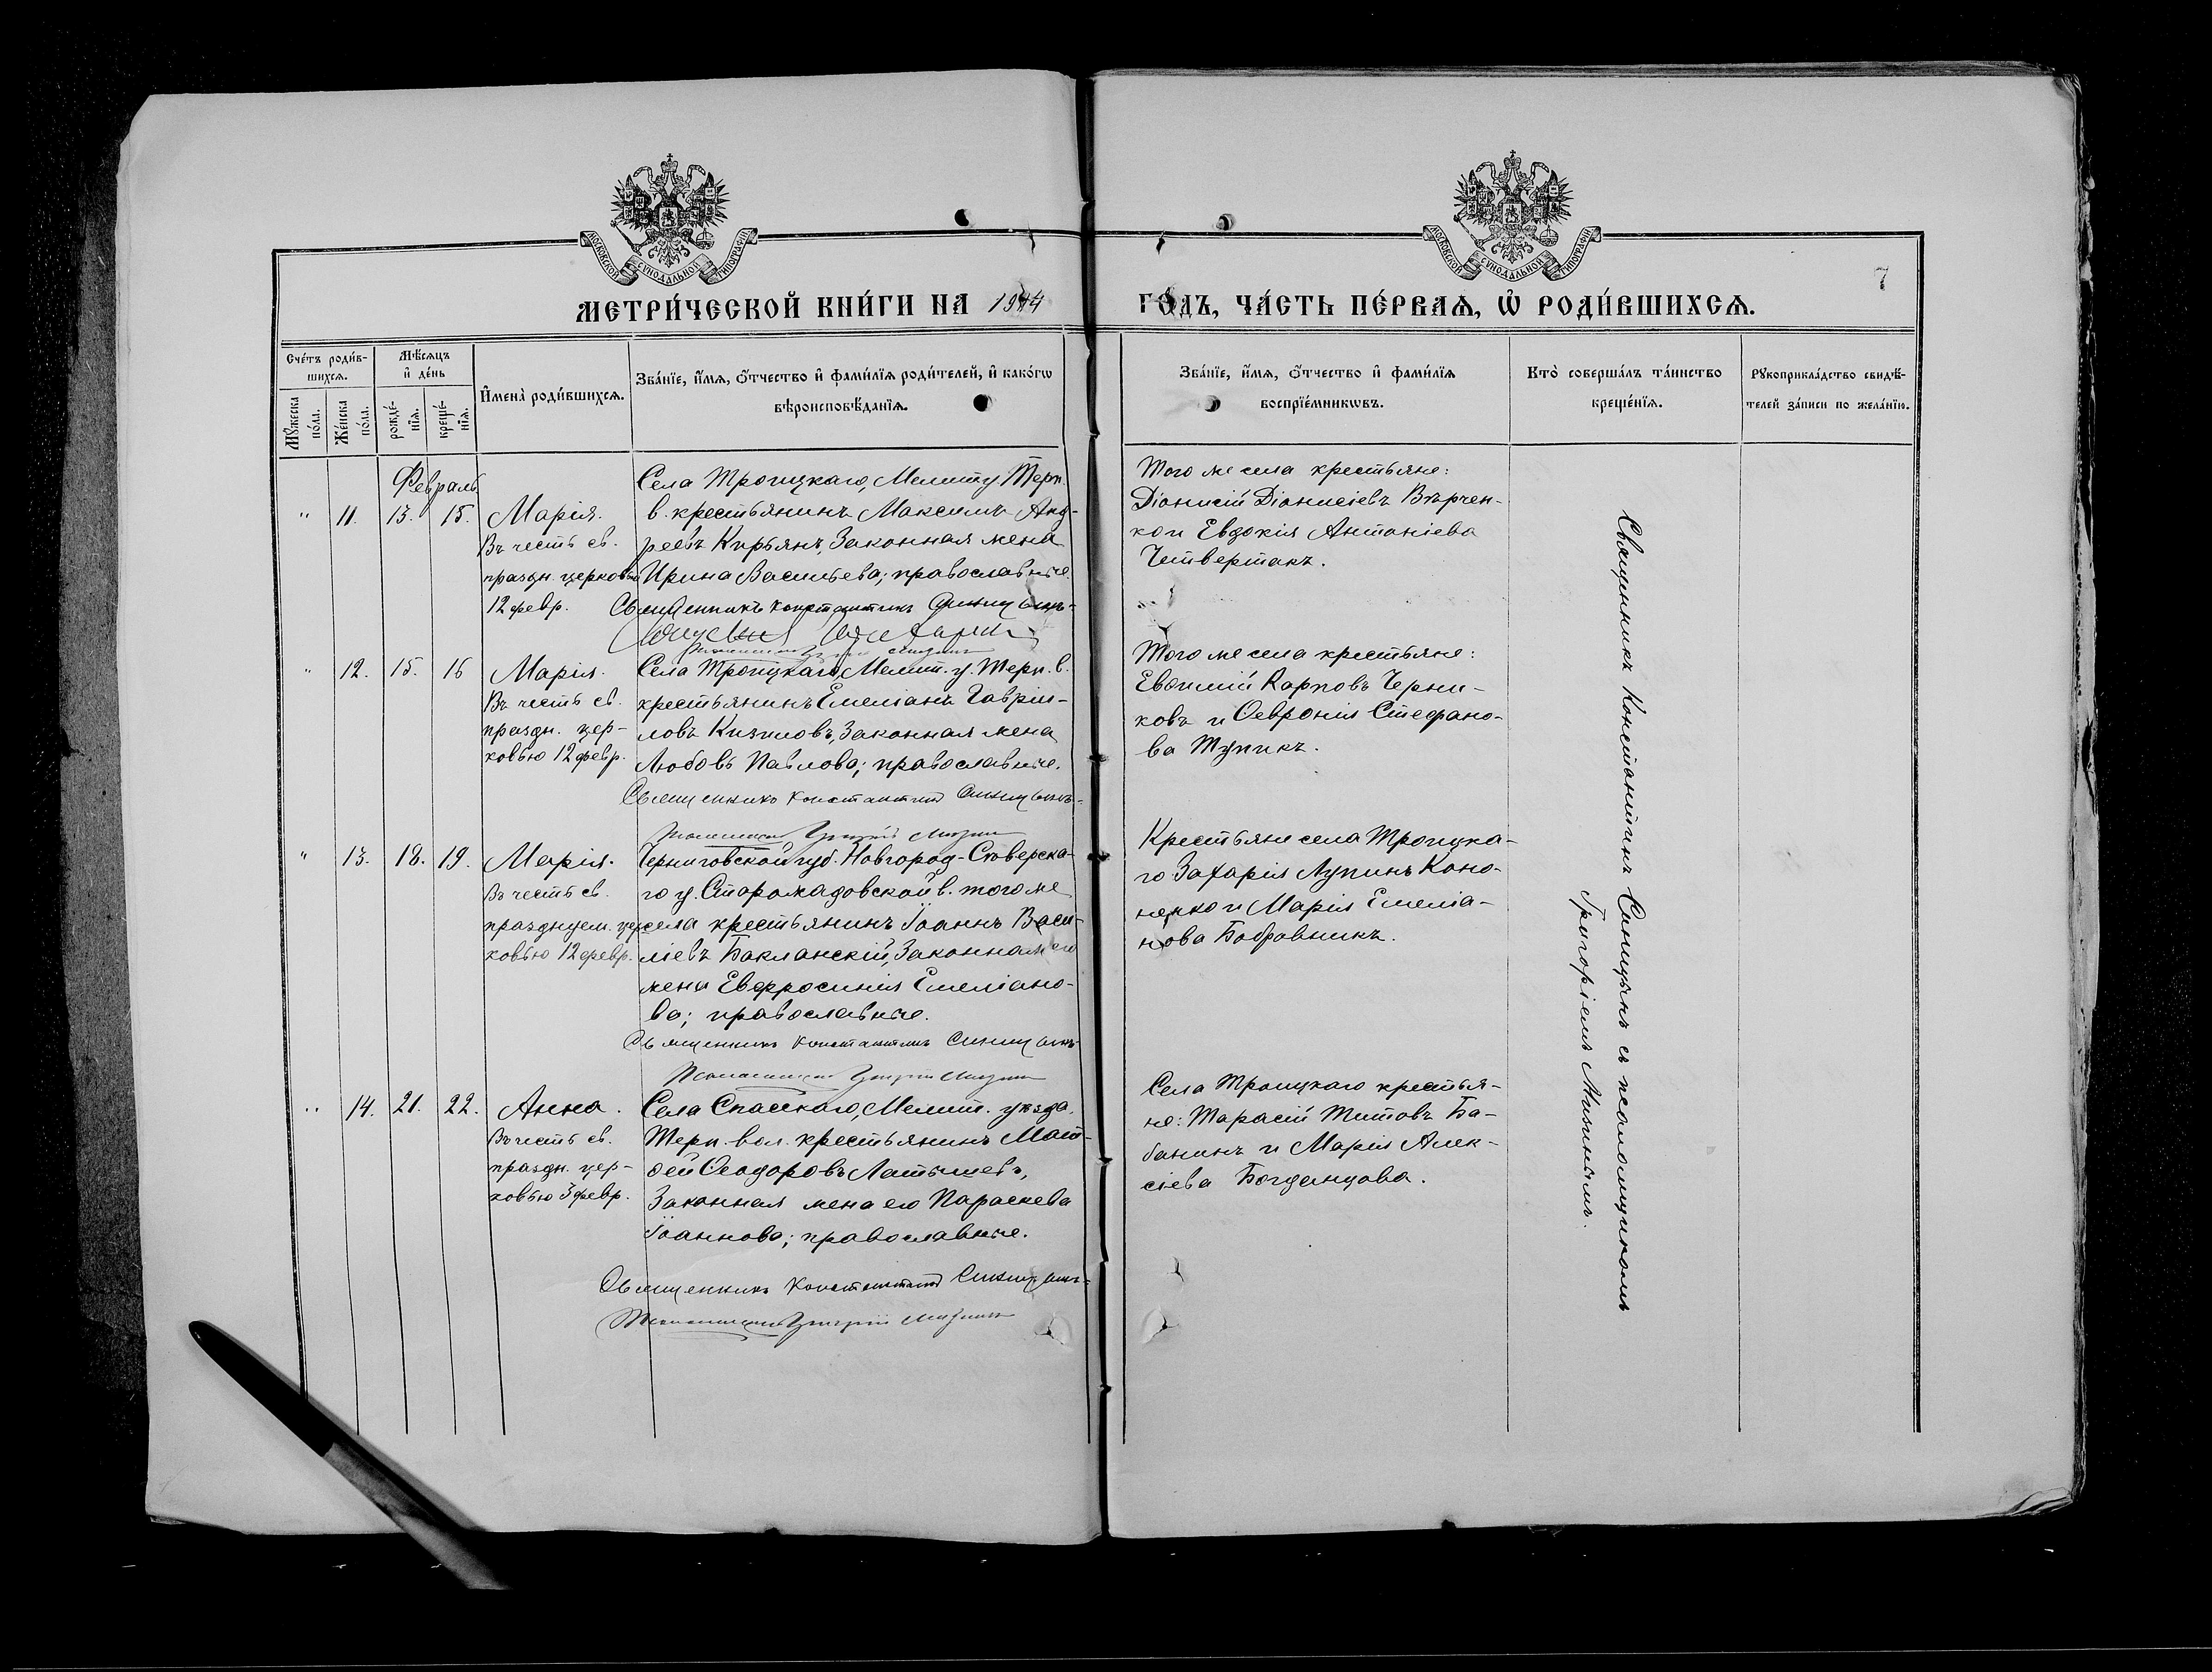 МОСКОВСКОЙ СУНОДАЛЬНОЙ ТИПОГРАФІИ
МОСКОВСКОЙ СУНОДАЛЬНОЙ ТИПОГРАФІИ
7
МЕТРИ́ЧЕСКОЙ КНИ́ГИ НА 1914 ГО́ДЪ, ЧА́СТЬ ПЕ́РВАѦ, Ѽ РОДИ́ВШИХСѦ.
Сче́тъ роди́в-
шихсѧ.
Мꙋ́жеска
по́ла.
Же́нска
по́ла.
Мѣ́сѧцъ
и҆ де́нь
рожде́-
нїѧ.
креще́-
нїѧ.
И҆мена̀ роди́вшихсѧ.
Зва́нїе, и҆́мѧ, ѻ҆́тчество и҆ фами́лїѧ роди́телей, и҆ како́гѡ
вѣроисповѣ́данїѧ.
Зва́нїе, и҆́мѧ, ѻ҆́тчество и҆ фами́лїѧ
воспрїе́мникѡвъ.
Кто̀ соверша́лъ та́инство
креще́нїѧ.
Рꙋкоприкла́дство свидѣ́-
телей за́писи по жела́нїю.
Февраль
" 11. 13. 15. Марія.
Въ честь св.
праздн. церковью
12 февр.
Села Троицкаго, Мелит у Терп.
в. крестьянинъ Максимъ Анд-
реевъ Кирьянъ, Законная жена
Ирина Васильева; православные.
Священникъ Константинъ Синицынъ
Того же села крестьяне:
Діонисій Діонисіевъ Вѣрчен-
ко и Евдокія Антоніева
Четвертакъ.
" 12. 15. 16 Марія.
Въ честь св.
праздн. цер-
ковью 12 февр.
Села Троицкаго, Мелит. у. Терп. в.
крестьянинъ Емеліанъ Гаврiи-
ловъ Кизиловъ, Законная жена
Любовь Павлова; православные.
Священникъ Константинъ Синицынъ
Того же села крестьяне:
Евѳимій Карповъ Черни-
ковъ и Ѳевронія Стефано-
ва Тупикъ.
" 13. 18. 19. Марія.
Въ честь св.
празднуем. цер
ковью 12 февр.
Псаломщикъ Григорій Мизинъ
Черниговской губ. Новгород-Сѣверска-
го у. Старомадовской в. того же
села крестьянинъ Іоаннъ Васи-
ліевъ Бакланскій, Законная его
жена Евфросинія Емеліано-
ва; православные.
Священникъ Константинъ Синицынъ
Псаломщикъ Григорій Мизинъ
Крестьяне села Троицка-
го Захарія Лупинъ Коно-
ненко и Марія Емеліа-
нова Бобровникъ.
" 14. 21. 22. Анна.
Въ честь св.
праздн. цер-
ковью 3 февр.
Села Спасскаго, Мелит. уѣзда,
Терп. вол. крестьянинъ Мат-
ѳей Ѳеодоровъ Латышевъ,
Законная жена его Параскева
Іоаннова; православные.
Священникъ Константинъ Синицынъ
Псаломщикъ Григорій Мизинъ
Села Троицкаго крестья-
не: Тарасій Титовъ Ба-
банинъ и Марія Алек-
сіева Богданцова.
Священникъ Константинъ Синицынъ съ псаломщикомъ
Григоріемъ Мизинымъ.